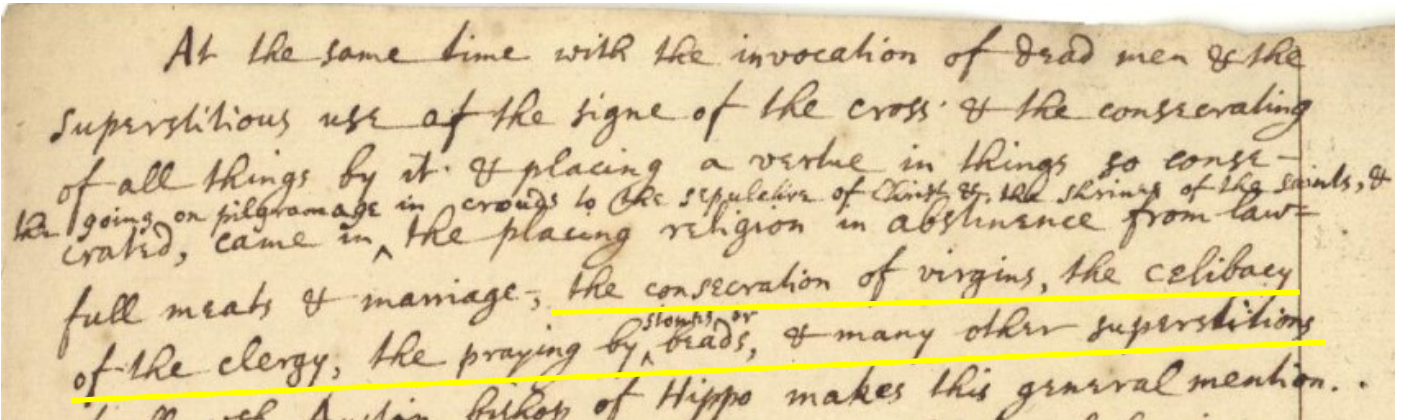 At the same time with the invocation of dead men & the
superstitious use of the signe of the cross & the consecrating
of all things by it & placing a vertue in things so conse-
the going on pilgramage in crouds to the sepulchre of Christ & the shrines of the saints, &
crated, came in ^ the placing religion in abstinence from law=
full meats & marriage, the consecration of virgins, the celibacy
stones or
of the clergy, the praying by ^ beads, & many other superstitions
bishop of Hippo makes this general mention.